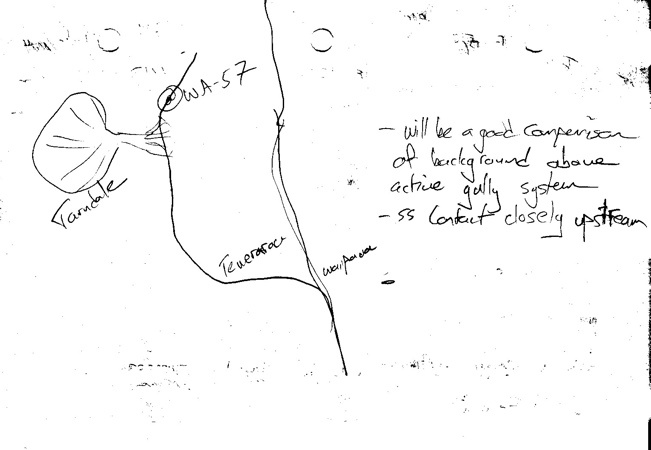 WA-57
- will be a good comparison
of background above
active gully system
- ss contact closely upstream
Tarndale
Teweraroa
waipaoa